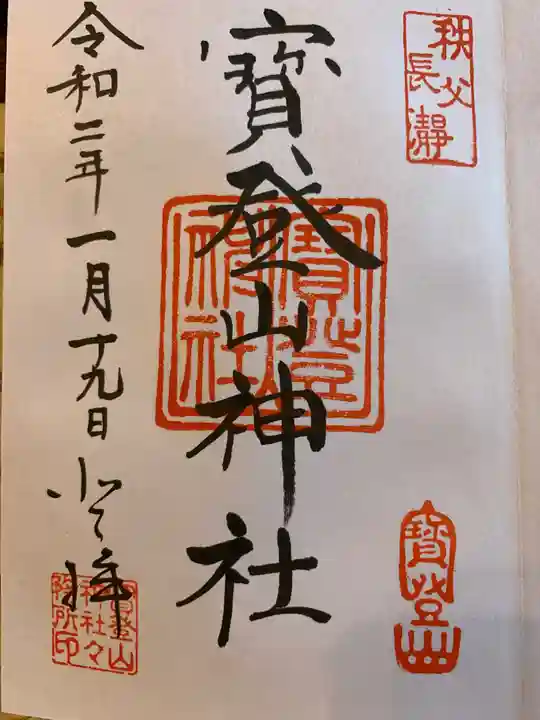 秩父
長瀞
寳登山神社
寳登山
神社
寳登山
令和二年一月十九日
登拝
寳登山
神社々
務所印